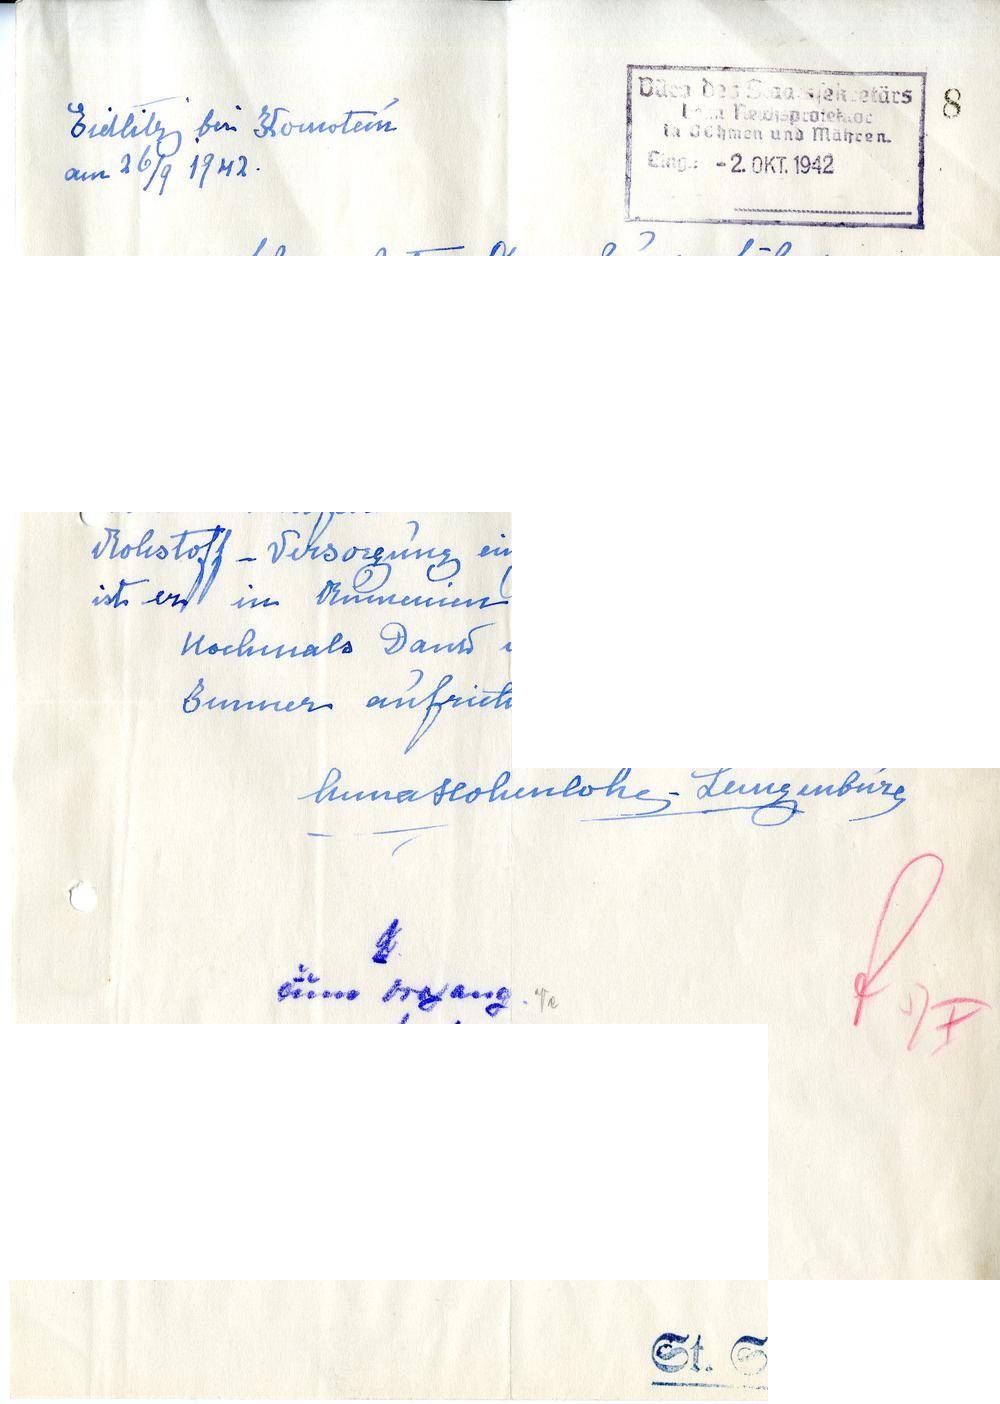 Eidlitz bei Komotein
am 26/9 1942.
Büro des Staatssekretärs
beim Reichsprotektor
in Böhmen und Mähren.
Eing.: -2. OKT. 1942
8
Rohstoff - Versorgung ein
ist er in Rumenien
Nochmals Dank
Immer aufrich
Anna Hohenlohe - Langenburg
zum Vorgang.
St. S